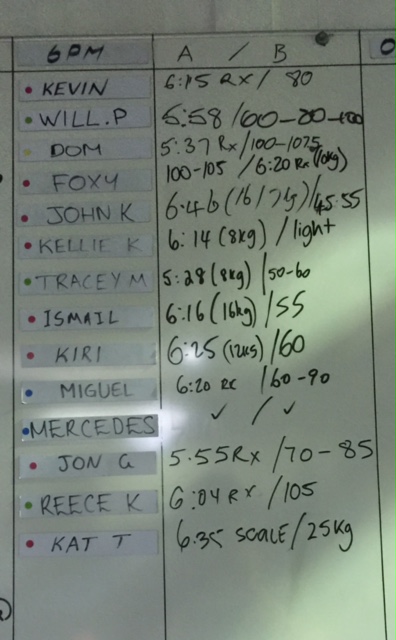 6PM A / B
KEVIN 6:15 RX / 80
WILL.P 5:58 /60-80-100
DOM 5:37 Rx/100-1075
FOXY 100-105 / 6:20 Rx (10kg)
JOHN K 6.46 (16/24)/45.55
KELLIE K 6:14 (8kg) / light
TRACEY M 5:28 (8kg) /50-60
ISMAIL 6:16 (16kg) /55
KIRI 6:25 (12KG) /60
MIGUEL 6:20 RX /60-90
MERCEDES ✓ / ✓
JON G 5.55RX /70-85
REECE K 6:04 RX /105
KAT T 6.35 SCALE / 25Kg